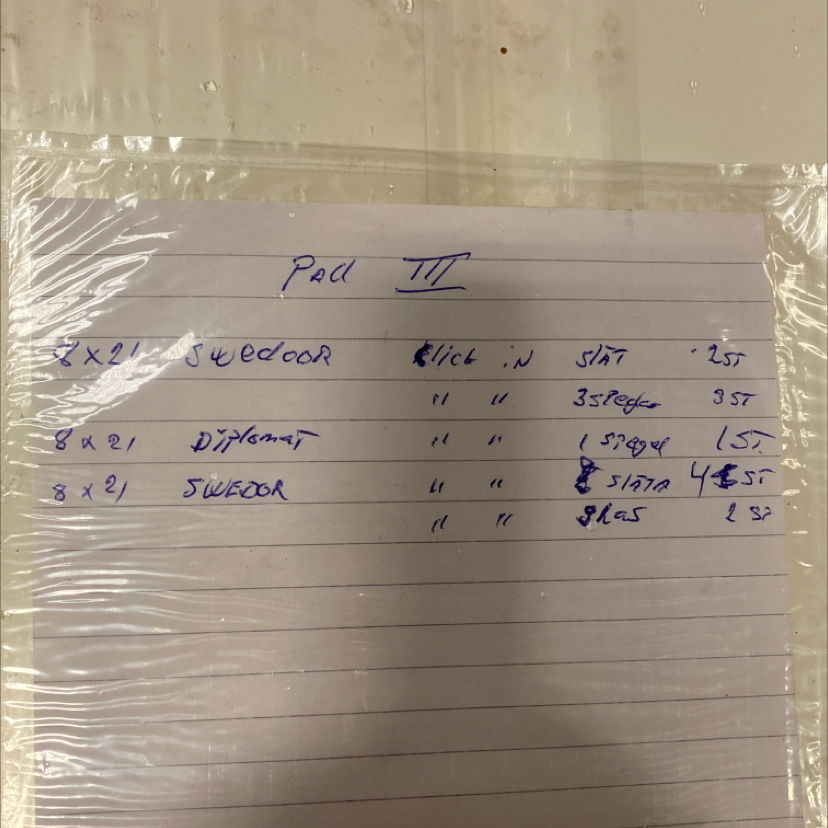 Pall III
8 x 21 Swedoor Click iN Slät 2 ST
" " 3 spegel 3 ST
8 x 21 Diplomat " " 1 spegel 1 ST.
8 x 21 SWEDOR " " SläTA 4 ST
" " glas 2 ST